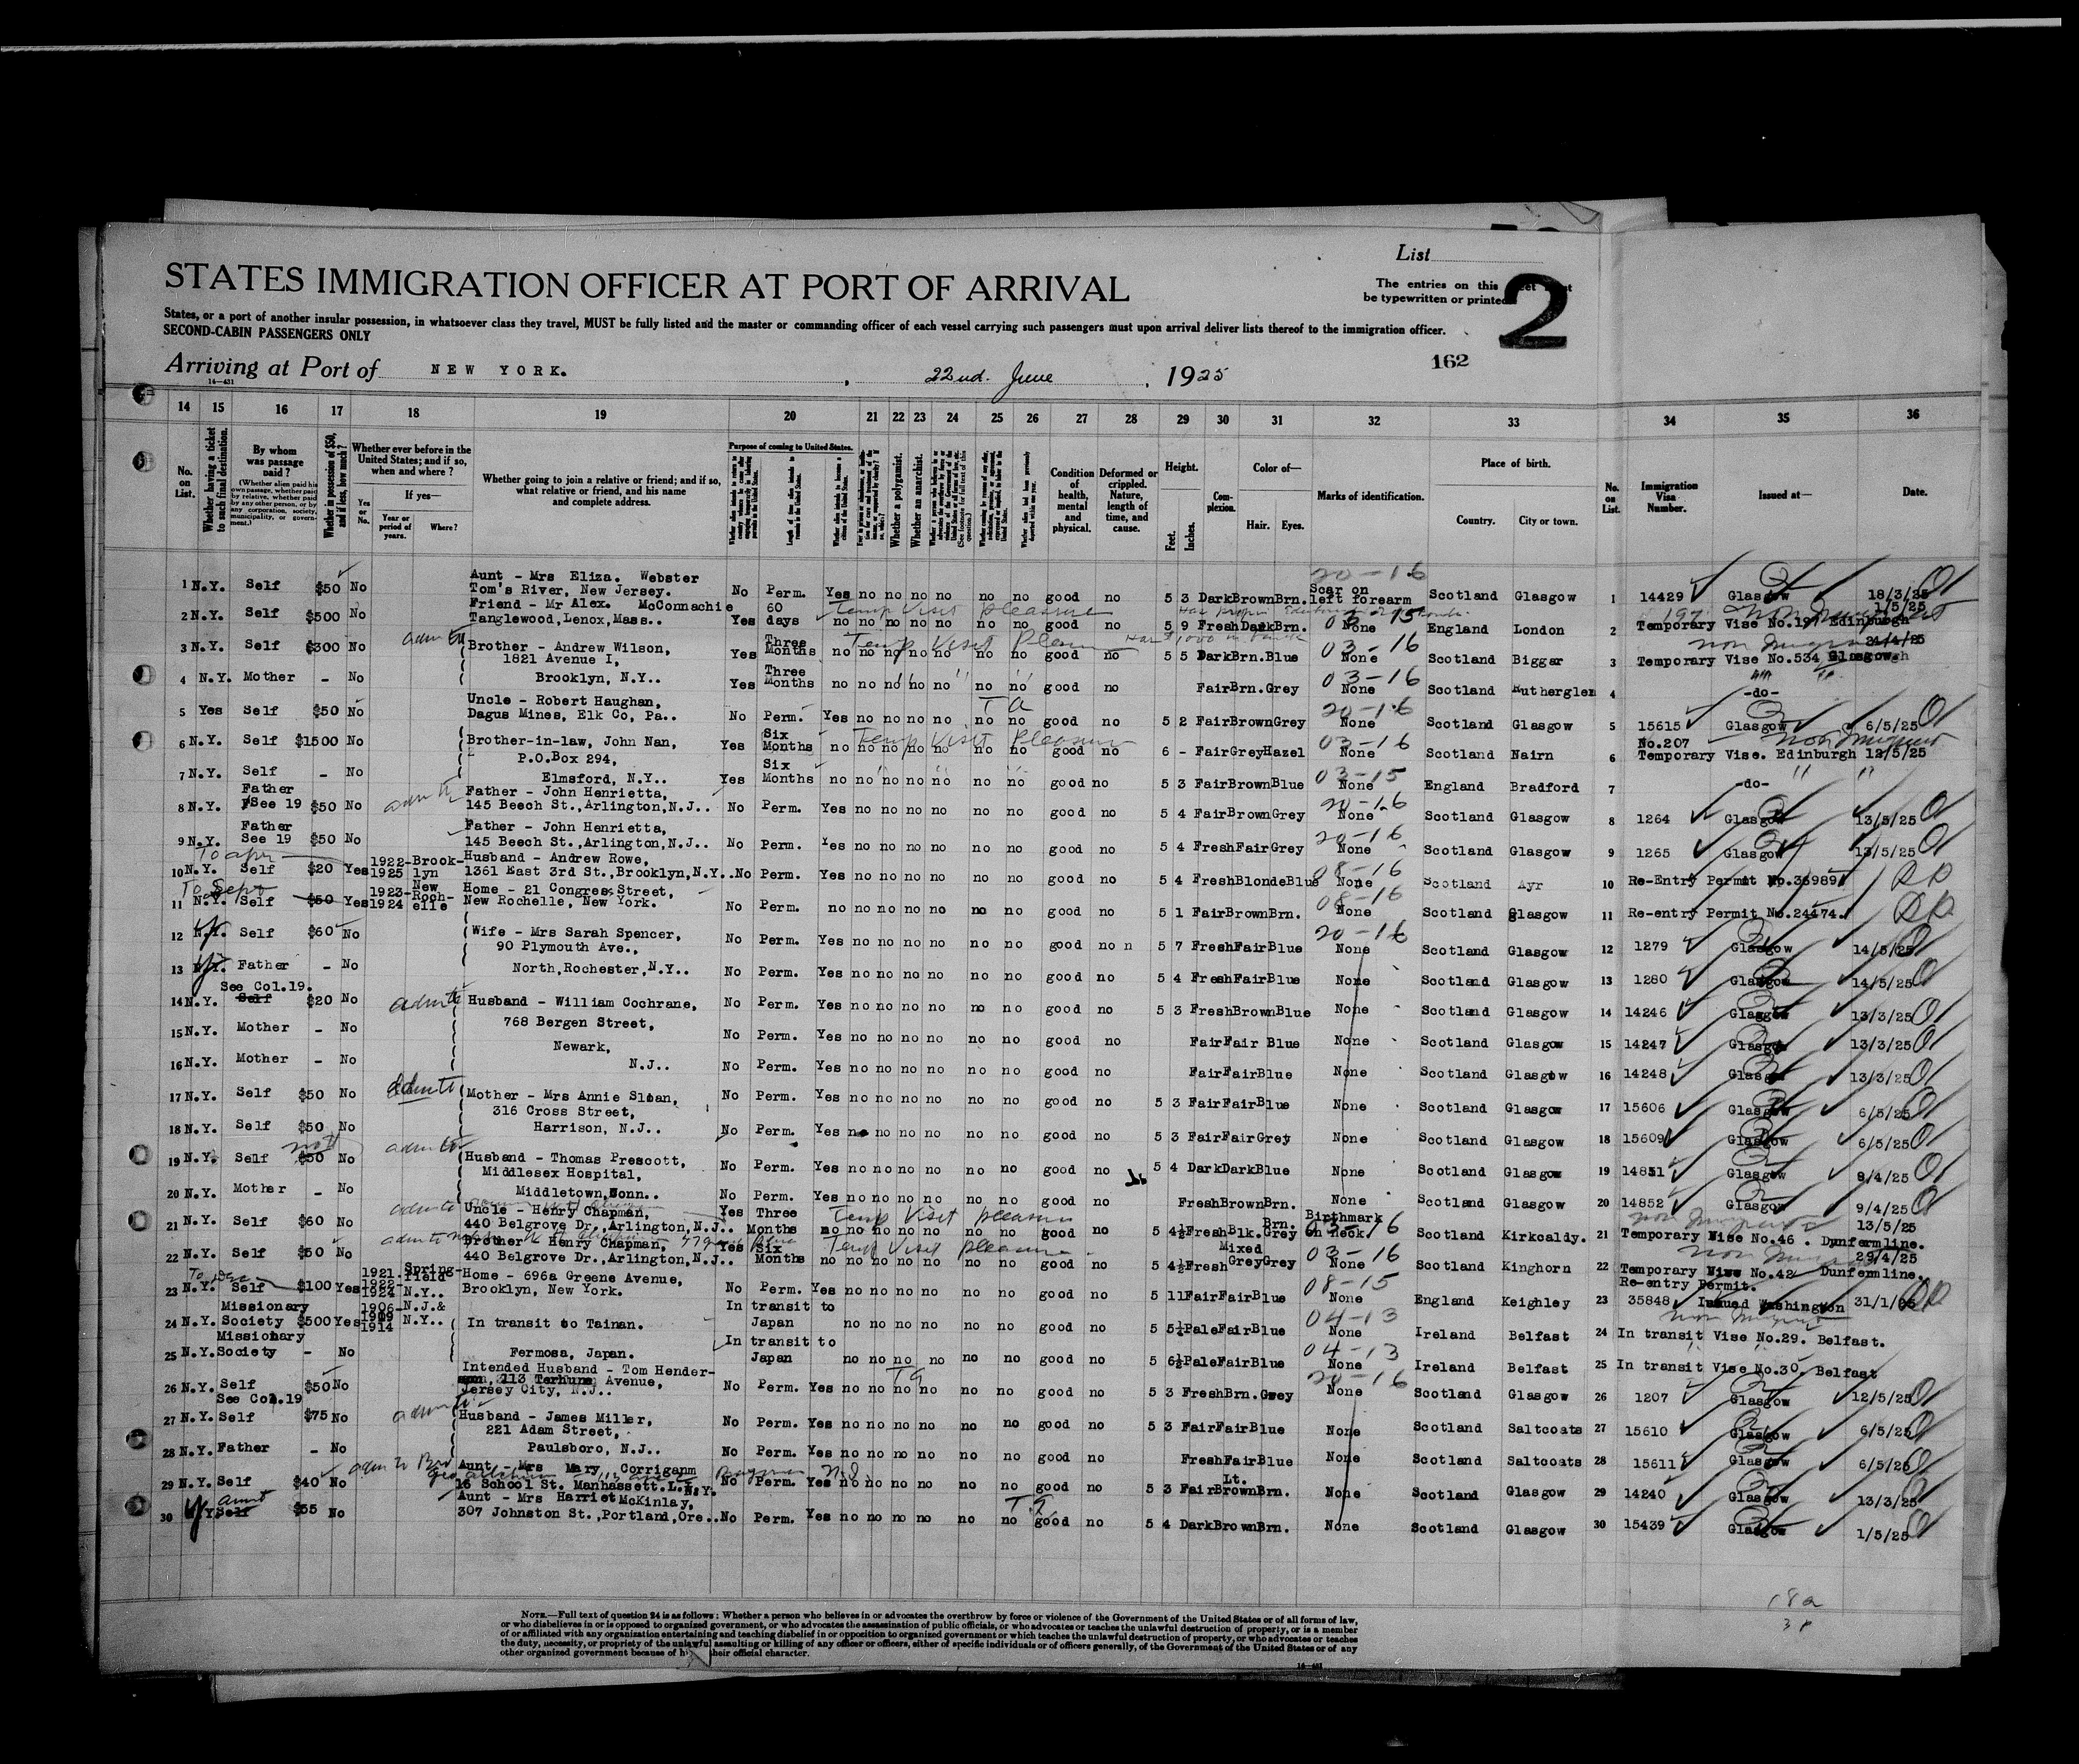 List
STATES IMMIGRATION OFFICER AT PORT OF ARRIVAL
The entries on this
be typewritten or printed
2
States, or a port of another insular possession, in whatsoever class they travel, MUST be fully listed and the master or commanding officer of each vessel carrying such passengers must upon arrival deliver lists thereof to the immigration officer.
SECOND-CABIN PASSENGERS ONLY
162
Arriving at Port of NEW YORK. , 22nd. June , 1925
14—431
14 15 16 17 18 19 20 21 22 23 24 25 26 27 28 29 30 31 32 33 34 35 36
No. on List.
Whether having a ticket to such final destination.
By whom was passage paid?
(Whether alien paid his own passage, whether paid by relative, whether paid by any other person, or by any corporation, society, municipality, or government.)
Whether in possession of $50, and if less, how much?
Whether ever before in the United States; and if so, when and where?
Yes or No.
If yes—
Year or period of years.
Where?
Whether going to join a relative or friend; and if so, what relative or friend, and his name and complete address.
Purpose of coming to United States.
Whether a polygamist.
Whether an anarchist.
Condition of health, mental and physical.
Deformed or crippled. Nature, length of time, and cause.
Height.
Feet. Inches.
Complexion.
Color of—
Hair. Eyes.
Marks of identification.
Place of birth.
Country. City or town.
No. on List.
Immigration Visa Number.
Issued at—
Date.
1 N.Y. Self $50 No Aunt - Mrs Eliza. Webster Tom's River, New Jersey. No Perm. Yes no no no no no no good no 5 3 Dark Brown Brn. Scar on left forearm 20-16 Scotland Glasgow 1 14429 Glasgow 18/3/25
2 N.Y. Self $500 No Friend - Mr Alex. McConnachie Tanglewood, Lenox, Mass.. Yes 60 days no no no no no no no good no 5 9 Fresh Dark Brn. None 03-15 England London 2 Temporary Vise No.197 Edinburgh 1/5/25
Temp Visit pleasure
3 N.Y. Self $300 No Brother - Andrew Wilson, 1821 Avenue I, Yes Three Months no no no no no no no good no 5 5 Dark Brn. Blue None 03-16 Scotland Biggar 3 Temporary Vise No.534 Glasgow
Temp Visit Pleasure
4 N.Y. Mother - No Brooklyn, N.Y.. Yes Three Months no no no no no no no good no Fair Brn. Grey None 03-16 Scotland Rutherglen 4 -do-
5 Yes Self $50 No Uncle - Robert Haughan, Dagus Mines, Elk Co, Pa.. No Perm. Yes no no no no no no good no 5 2 Fair Brown Grey None 20-16 Scotland Glasgow 5 15615 Glasgow 6/5/25
6 N.Y. Self $1500 No Brother-in-law, John Nan, P.O.Box 294, Yes Six Months no no no no no no no good no 6 - Fair Grey Hazel None 03-16 Scotland Nairn 6 No.207 Temporary Vise. Edinburgh 12/5/25
Temp Visit Pleasure
7 N.Y. Self - No Elmsford, N.Y.. Yes Six Months no no no no no no no good no 5 3 Fair Brown Blue None 03-15 England Bradford 7 -do-
8 N.Y. Father See 19 $50 No Father - John Henrietta, 145 Beech St., Arlington, N.J.. No Perm. Yes no no no no no no good no 5 4 Fair Brown Grey None 20-16 Scotland Glasgow 8 1264 Glasgow 13/5/25
9 N.Y. Father See 19 $50 No Father - John Henrietta, 145 Beech St., Arlington, N.J.. No Perm. Yes no no no no no no good no 5 4 Fresh Fair Grey None 20-16 Scotland Glasgow 9 1265 Glasgow 13/5/25
10 N.Y. Self $20 Yes 1922-1925 Brooklyn Husband - Andrew Rowe, 1361 East 3rd St., Brooklyn, N.Y.. No Perm. Yes no no no no no no good no 5 4 Fresh Blonde Blue None 08-16 Scotland Ayr 10 Re-Entry Permit No.36989
11 N.Y. Self $50 Yes 1923-1924 New Rochelle Home - 21 Congress Street, New Rochelle, New York. No Perm. no no no no no no no good no 5 1 Fair Brown Brn. None 08-16 Scotland Glasgow 11 Re-entry Permit No.24474.
12 N.Y. Self $60 No Wife - Mrs Sarah Spencer, 90 Plymouth Ave., No Perm. Yes no no no no no no good no n 5 7 Fresh Fair Blue None 20-16 Scotland Glasgow 12 1279 Glasgow 14/5/25
13 N.Y. Father - No North, Rochester, N.Y.. No Perm. Yes no no no no no no good no 5 4 Fresh Fair Blue None Scotland Glasgow 13 1280 Glasgow 14/5/25
14 N.Y. See Col.19. Self $20 No Husband - William Cochrane, No Perm. Yes no no no no no no good no 5 3 Fresh Brown Blue None Scotland Glasgow 14 14246 Glasgow 13/3/25
15 N.Y. Mother - No 768 Bergen Street, No Perm. Yes no no no no no no good no Fair Fair Blue None Scotland Glasgow 15 14247 Glasgow 13/3/25
Newark,
16 N.Y. Mother - No N.J.. No Perm. Yes no no no no no no good no Fair Fair Blue None Scotland Glasgow 16 14248 Glasgow 13/3/25
17 N.Y. Self $50 No Mother - Mrs Annie Sloan, 316 Cross Street, No Perm. Yes no no no no no no good no 5 3 Fair Fair Blue None Scotland Glasgow 17 15606 Glasgow 6/5/25
18 N.Y. Self $50 No Harrison, N.J.. No Perm. Yes no no no no no no good no 5 3 Fair Fair Grey None Scotland Glasgow 18 15609 Glasgow 6/5/25
19 N.Y. Self $50 No Husband - Thomas Prescott, Middlesex Hospital, No Perm. Yes no no no no no no good no 5 4 Dark Dark Blue None Scotland Glasgow 19 14851 Glasgow 9/4/25
20 N.Y. Mother - No Middletown, Conn.. No Perm. Yes no no no no no no good no Fresh Brown Brn. None Scotland Glasgow 20 14852 Glasgow 9/4/25
21 N.Y. Self $60 No Uncle - Henry Chapman, 440 Belgrove Dr., Arlington, N.J.. Yes Three Months no no no no no no no good no 5 4½ Fresh Blk. Brn. Grey Birthmark on neck 03-16 Scotland Kirkcaldy. 21 Temporary Vise No.46 . Dunfermline. 13/5/25
Temp Visit pleasure
22 N.Y. Self $50 No Brother Henry Chapman, 440 Belgrove Dr., Arlington, N.J.. Yes Six Months no no no no no no no good no 5 4½ Fresh Mixed Grey Grey None 03-16 Scotland Kinghorn 22 Temporary Vise No.42 Dunfermline. 29/4/25
Temp Visit pleasure
23 N.Y. Self $100 Yes 1921. 1922-1924 Springfield N.Y.. Home - 696a Greene Avenue, Brooklyn, New York. No Perm. Yes no no no no no no good no 5 11 Fair Fair Blue None 08-15 England Keighley 23 Re-entry Permit. 35848 Issued Washington 31/1/25
24 N.Y. Missionary Society $500 Yes 1906-1909 1914 N.J.& N.Y.. In transit to Tainan. In transit to Japan no no no no no no good no 5 5½ Pale Fair Blue None 04-13 Ireland Belfast 24 In transit Vise No.29. Belfast.
25 N.Y. Missionary Society - No Fermosa, Japan. In transit to Japan no no no no no no good no 5 6½ Pale Fair Blue None 04-13 Ireland Belfast 25 In transit Vise No.30. Belfast
26 N.Y. Self $50 No Intended Husband - Tom Henderson, 213 Terhune Avenue, Jersey City, N.J.. No Perm. Yes no no no no no no good no 5 3 Fresh Brn. Grey None 20-16 Scotland Glasgow 26 1207 Glasgow 12/5/25
27 N.Y. See Col.19 Self $75 No Husband - James Miller, 221 Adam Street, No Perm. Yes no no no no no no good no 5 3 Fair Fair Blue None Scotland Saltcoats 27 15610 Glasgow 6/5/25
28 N.Y. Father - No Paulsboro, N.J.. No Perm. Yes no no no no no no good no Fresh Fair Blue None Scotland Saltcoats 28 15611 Glasgow 6/5/25
29 N.Y. Self $40 No Aunt - Mrs Mary Corriganm 16 School St. Manhassett. L.I. N.Y. No Perm. Yes no no no no no no good no 5 3 Fair Lt. Brown Brn. None Scotland Glasgow 29 14240 Glasgow 13/3/25
30 N.Y. Self aunt $55 No Aunt - Mrs Harriet McKinlay, 307 Johnston St., Portland, Ore.. No Perm. Yes no no no no no no good no 5 4 Dark Brown Brn. None Scotland Glasgow 30 15439 Glasgow 1/5/25
18a
NOTE.—Full text of question 24 is as follows: Whether a person who believes in or advocates the overthrow by force or violence of the Government of the United States or of all forms of law,
or who disbelieves in or is opposed to organized government, or who advocates the assassination of public officials, or who advocates or teaches the unlawful destruction of property, or is a member
of or affiliated with any organization entertaining and teaching disbelief in or opposition to organized government or which teaches the unlawful destruction of property, or who advocates or teaches
the duty, necessity, or propriety of the unlawful assaulting or killing of any officer or officers, either of specific individuals or of officers generally, of the Government of the United States or of any
other organized government because of their official character.